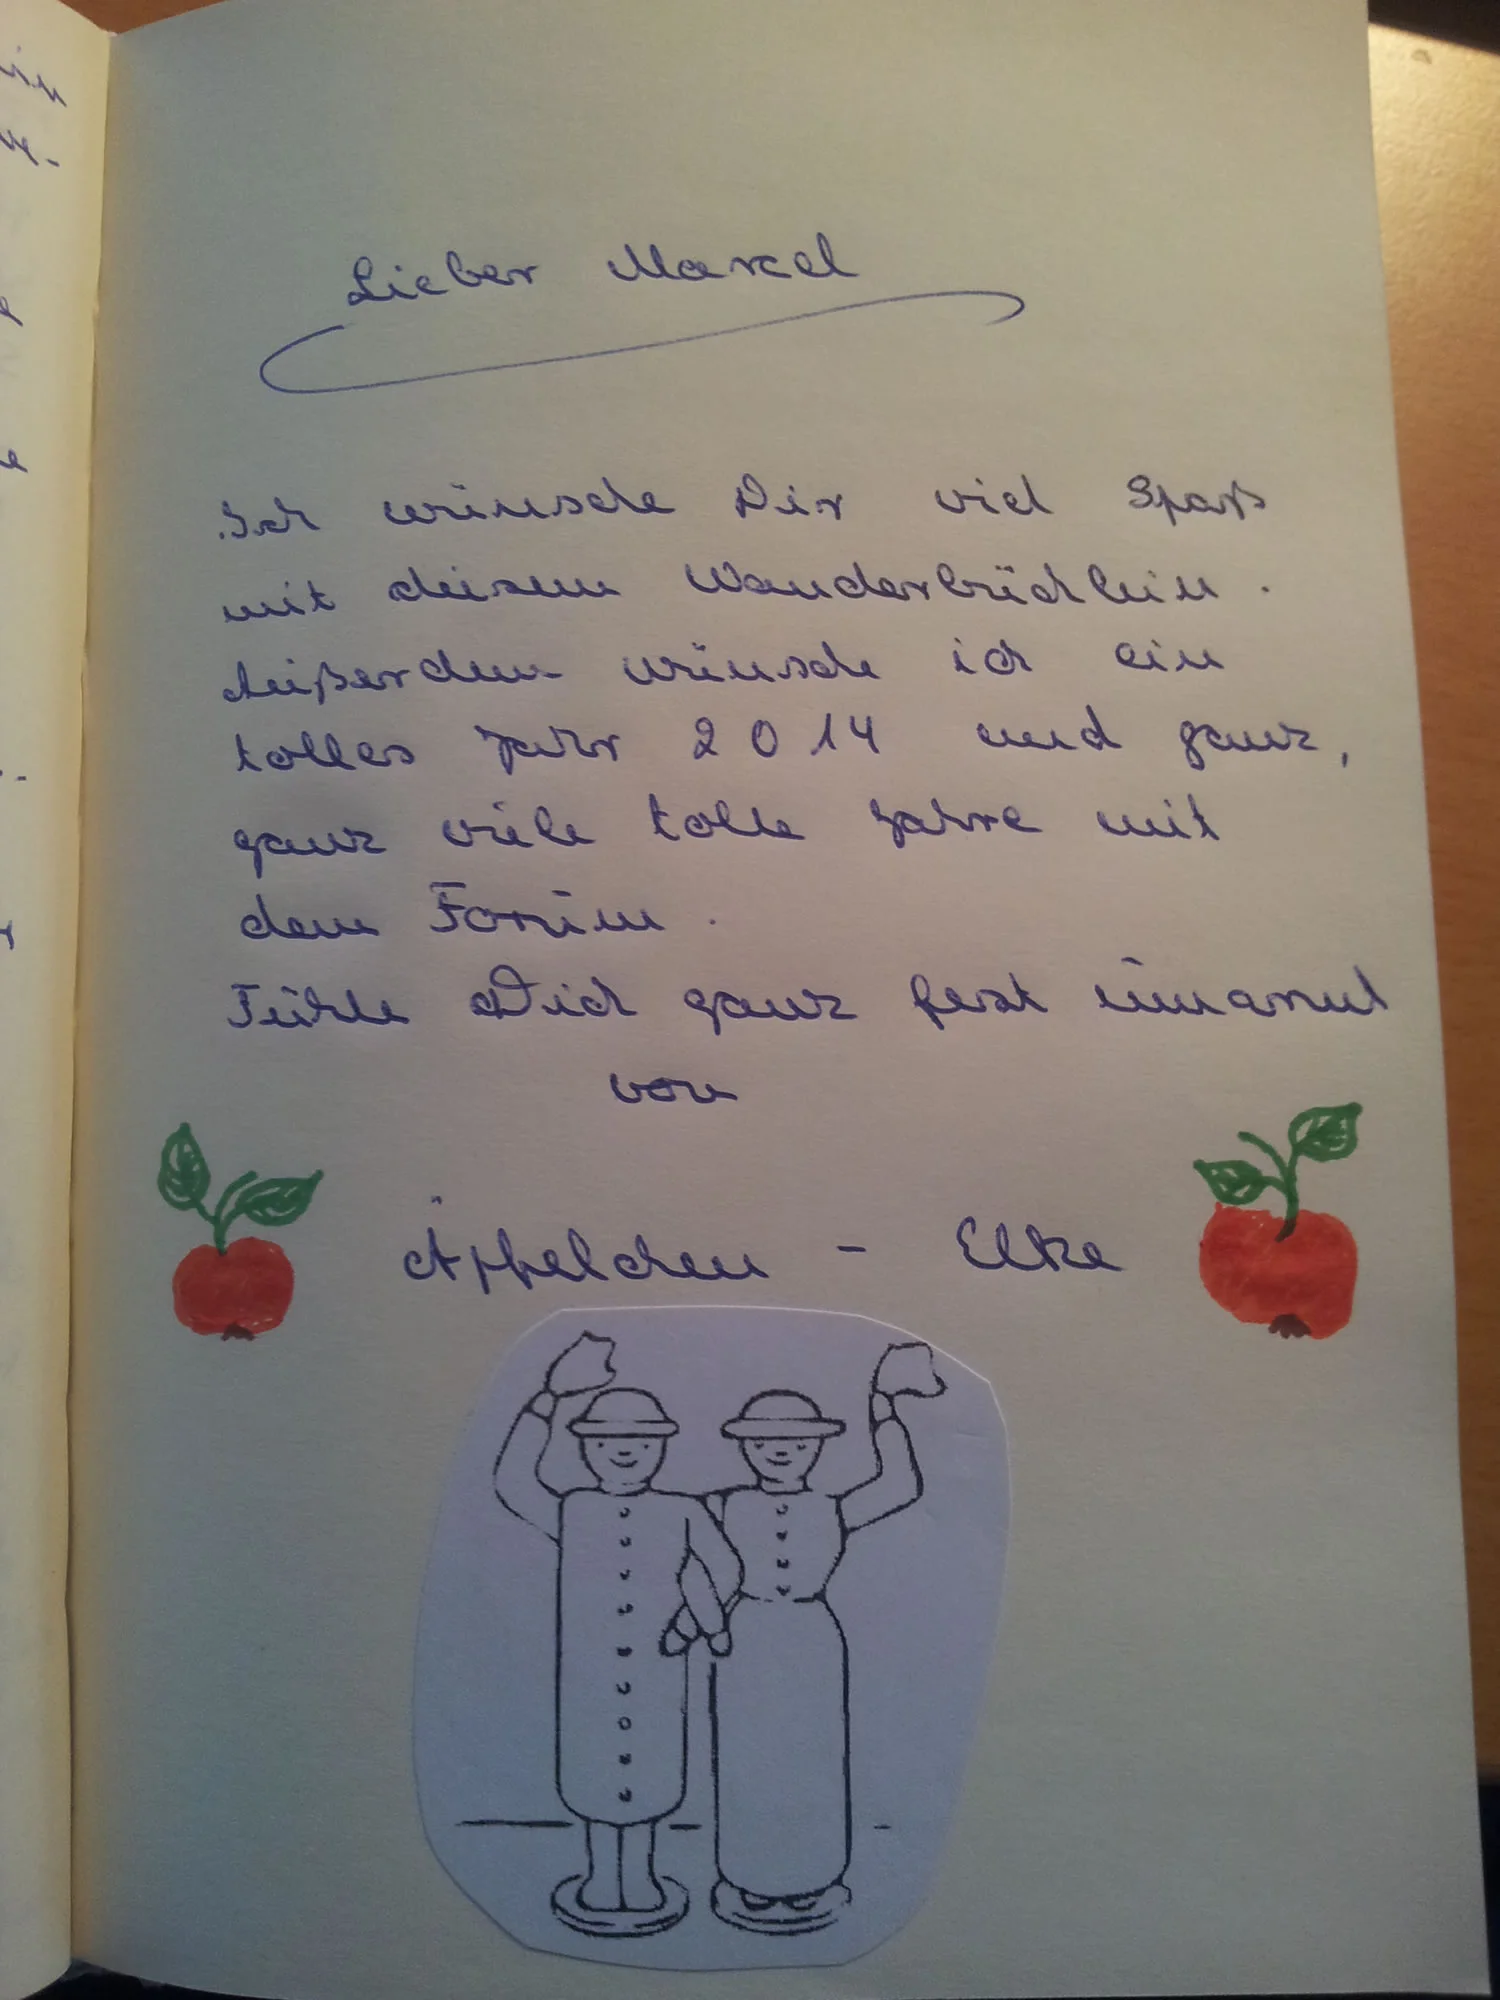 Lieber Marcel
Ich wünsche Dir viel Spaß
mit diesem Wanderbüchlein.
Außerdem wünsche ich ein
tolles Jahr 2014 und ganz,
ganz viele tolle Jahre mit
dem Forum.
Fühle Dich ganz fest umarmt
von
Äpfelchen - Elke